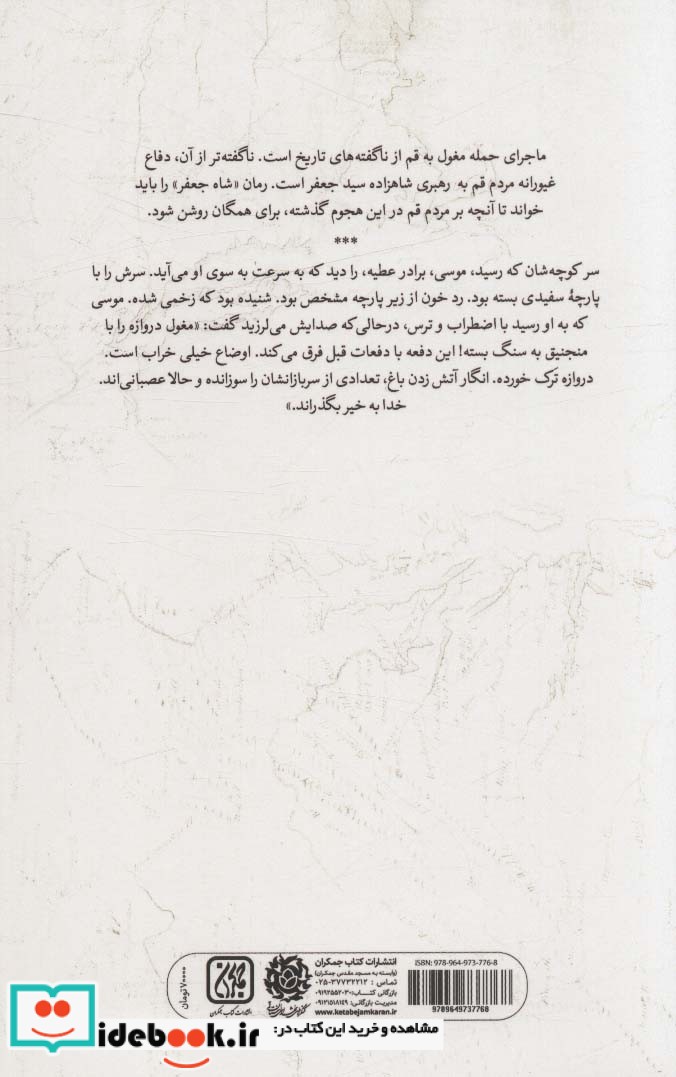 ماجرای حمله مغول به قم از ناگفته‌های تاریخ است. ناگفته‌تر از آن، دفاع
غیورانه مردم قم به رهبری شاهزاده سید جعفر است. رمان «شاه جعفر» را باید
خواند تا آنچه بر مردم قم در این هجوم گذشته، برای همگان روشن شود.
***
سر کوچه‌شان که رسید، موسی، برادر عطیه، را دید که به سرعت به سوی او می‌آید. سرش را با
پارچهٔ سفیدی بسته بود. رد خون از زیر پارچه مشخص بود. شنیده بود که زخمی شده. موسی
که به او رسید با اضطراب و ترس، درحالی‌که صدایش می‌لرزید گفت: «مغول دروازه را با
منجنیق به سنگ بسته! این دفعه با دفعات قبل فرق می‌کند. اوضاع خیلی خراب است.
دروازه تَرک خورده. انگار آتش زدن باغ، تعدادی از سربازانشان را سوزانده و حالا عصبانی‌اند.
خدا به خیر بگذراند.»
ISBN: 978-964-973-776-8
9789649737768
انتشارات کتاب جمکران
(وابسته به مسجد مقدس جمکران)
تماس : ۳۷۷۳۲۲۱۲-۰۲۵
بازرگانی کتاب: ۰۹۱۹۲۵۵۲۰۳۰
مدیریت بازرگانی: ۰۹۱۲۱۵۱۸۱۴۹
www.ketabejamkaran.ir
انتشارات کتاب جمکران
۷۰۰۰۰ تومان
مشاهده و خرید این کتاب در:
idebook.ir